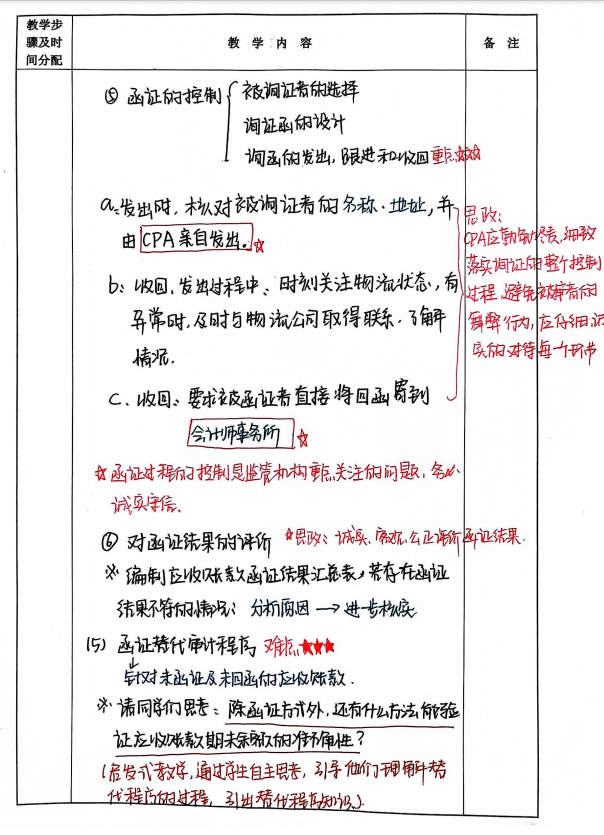 教学步
骤及时
间分配
教 学 内 容
备 注
⑤ 函证的控制
被询证者的选择
询证函的设计
询函的发出、跟进和收回 重点☆☆☆
a、发出时，核对被询证者的名称、地址，并
由 CPA亲自发出。☆
b、收回、发出过程中、时刻关注物流状态，有
异常时，及时与物流公司取得联系，了解
情况。
c、收回：要求被函证者直接将回函寄到
会计师事务所 ☆
思政：
CPA应勤勉尽责，细致
落实询证的整个控制
过程，避免被审者的
舞弊行为，应仔细、
实的对待每个环节
☆函证过程的控制是监管机构重点关注的问题，务必
诚实守信。
⑥ 对函证结果的评价 *思政：诚实、客观、公正评价函证结果.
※ 编制应收账款函证结果汇总表，若存在函证
结果不符的情况：分析原因 → 进一步核实
(5) 函证替代审计程序 难点★★★
↓
针对未函证及未回函的应收账款.
※ 请同学们思考：除函证方式外，还有什么方法能验
证应收账款期末余额的准确性？
(启发式教学，通过学生自主思考，引导他们理解替
代程序的过程，引出替代程序知识。)